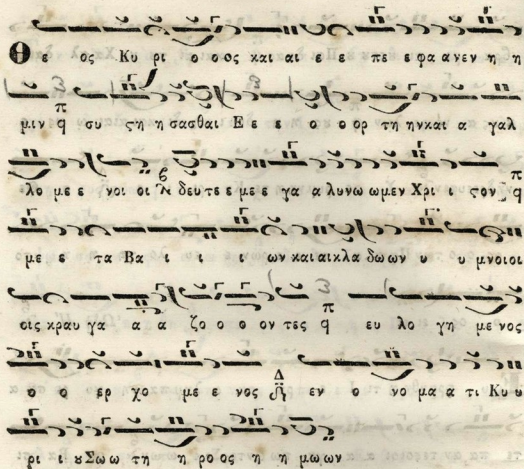 Θε ος Κυ ρι ο ο ος και αι ε ε πε ε φα α νεν η η
μιν ϥ συ ςη η σασθαι Ε ε ε ο ο ορ τη ην και α γαλ
λο με ε νοι οι δευ τε ε με ε γα α λυ νω ω μεν Χρι ι τον ϥ
με ε τα Βα ι ι ι ων και αι κλα δω ων υ υ μνοι οι
οις κραυ γα α α ζο ο ο ον τες ϥ ευ λο γη με νος
ο ο ερ χο με ε νος εν ο νο μα α τι Κυ υ
ρι ι ȣ Σω ω τη η ρο ος η η μω ων